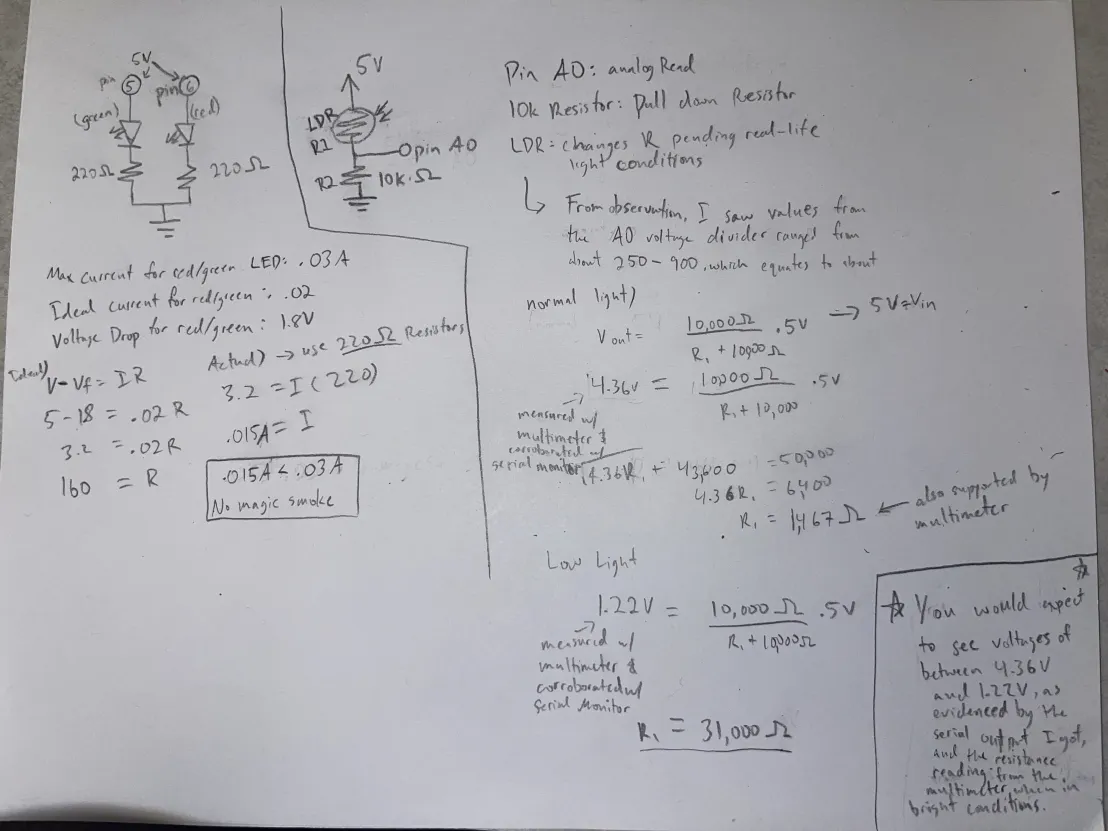 5V
pin 5
pin 6
(green)
(red)
220Ω
220Ω
5V
LDR
R1
pin A0
R2
10k.Ω
Max current for red/green LED: .03A
Ideal current for red/green: .02
Voltage Drop for red/green: 1.8V
Ideal)
V-Vf = IR
5-1.8 = .02 R
3.2 = .02R
160 = R
Actual) → use 220Ω Resistors
3.2 = I(220)
.015A = I
.015A < .03A
No magic smoke
Pin A0: analog Read
10k Resistor: Pull down Resistor
LDR: changes R pending real-life
light conditions
↳ From observation, I saw values from
the A0 voltage divider ranged from
about 250-900, which equates to about
normal light)
Vout = 10,000Ω / R1 + 10,000Ω .5V → 5V=Vin
4.36v = 10,000Ω / R1 + 10,000 .5V
measured w/
multimeter &
corroborated w/
serial monitor
4.36R1 + 43,600 = 50,000
4.36R1 = 6,400
R1 = 1,467Ω ← also supported by
multimeter
Low Light
1.22V = 10,000Ω / R1 + 10,000Ω .5V
measured w/
multimeter &
corroborated w/
Serial Monitor
R1 = 31,000Ω
☆ You would expect
to see voltages of
between 4.36V
and 1.22V, as
evidenced by the
serial output I got,
and the resistance
reading from the
multimeter when in
bright conditions.